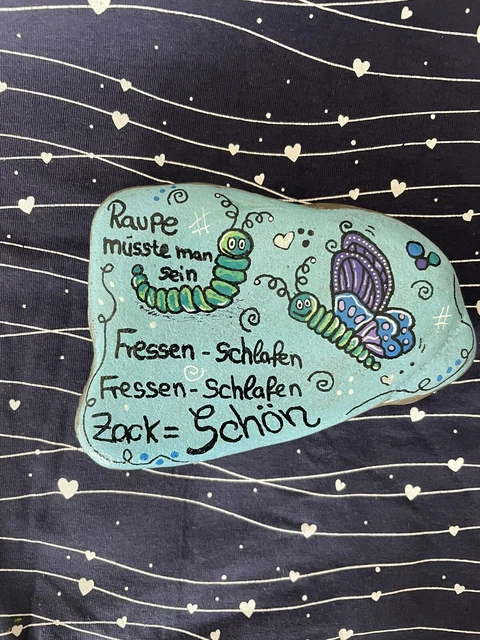 Raupe
müsste man
sein
Fressen - Schlafen
Fressen - Schlafen
Zack = Schön